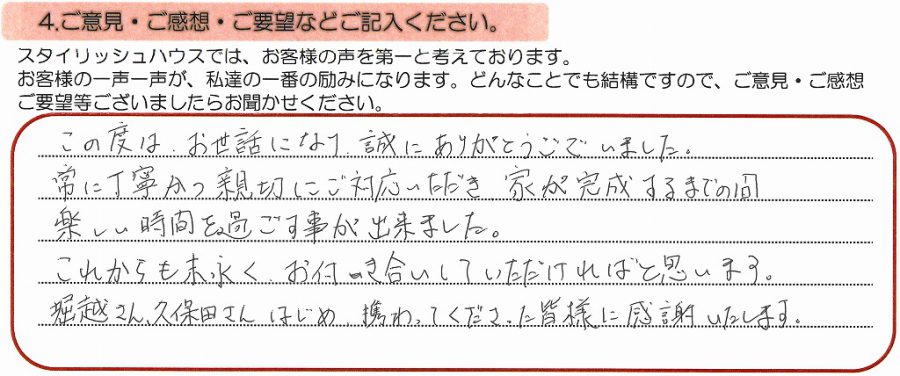 4.ご意見・ご感想・ご要望などご記入ください。
スタイリッシュハウスでは、お客様の声を第一と考えております。
お客様の一声一声が、私達の一番の励みになります。どんなことでも結構ですので、ご意見・ご感想
ご要望等ございましたらお聞かせください。
この度は、お世話になり、誠にありがとうございました。
常に丁寧かつ親切にご対応いただき 家が完成するまでの間
楽しい時間を過ごす事が出来ました。
これからも末永く、お付き合いしていただければと思います。
堀越さん、久保田さん はじめ、携わってくださった皆様に感謝いたします。